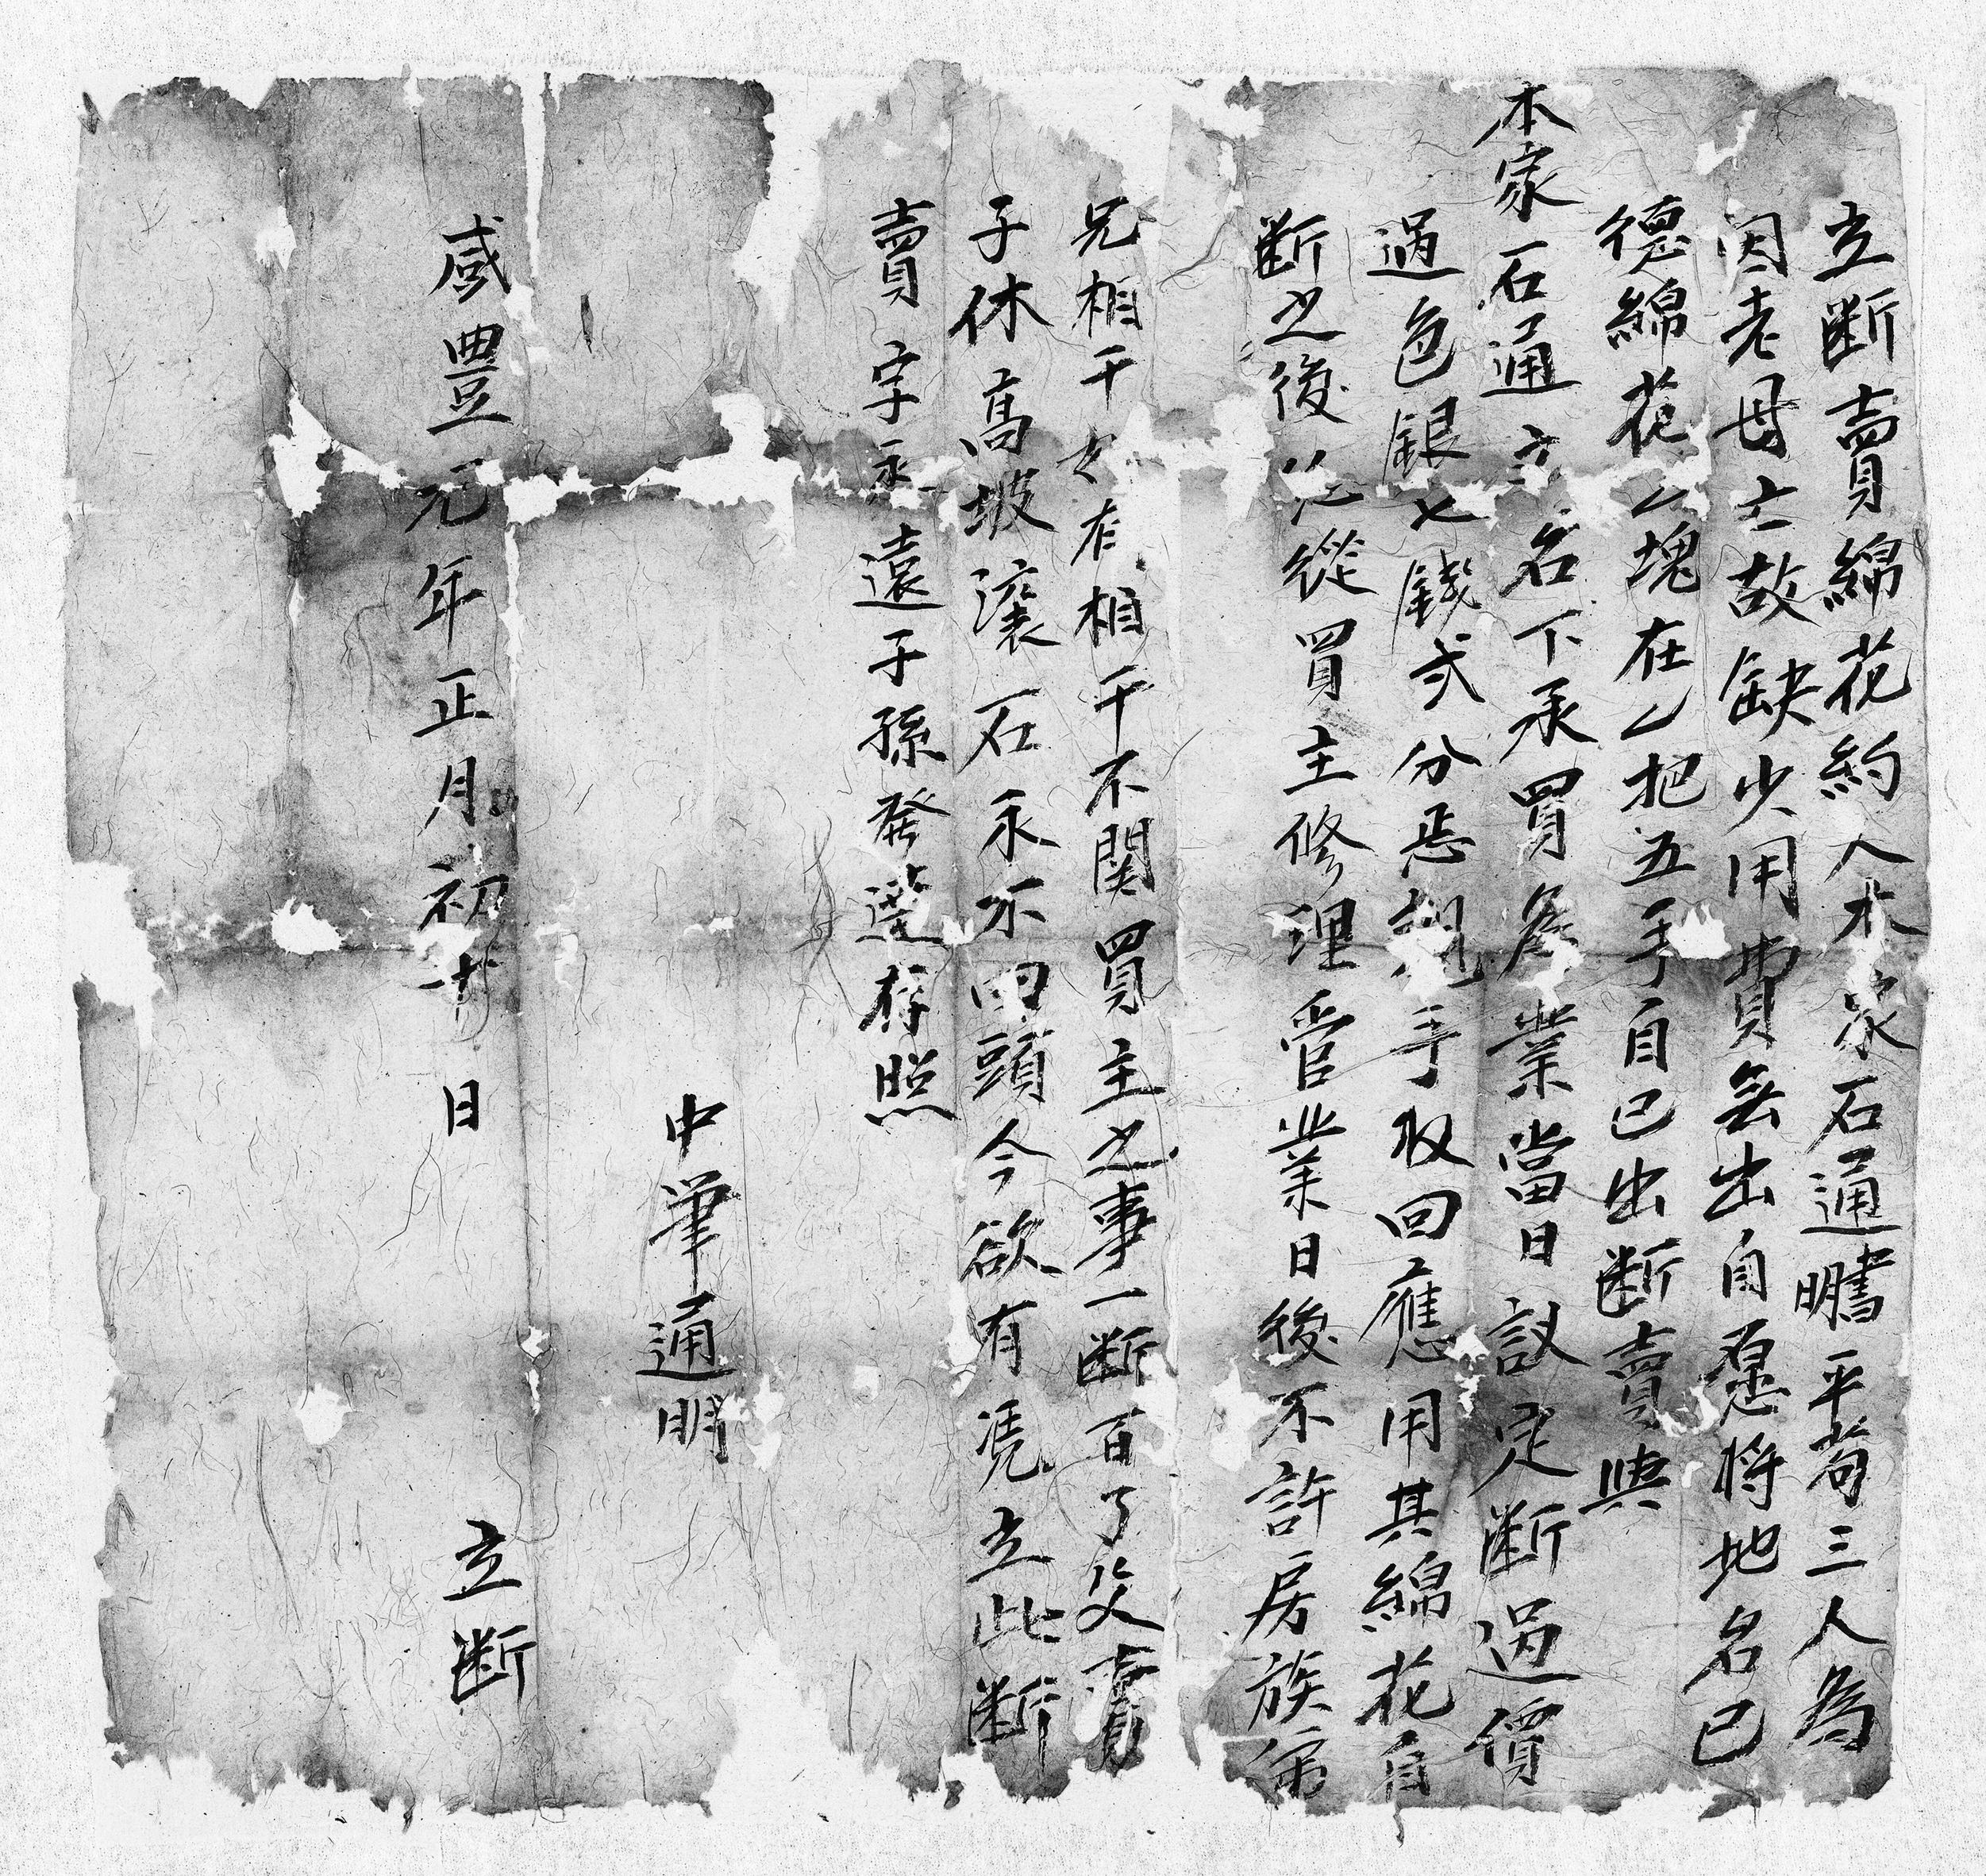 立断賣綿花約人本家石通鵬平苟三人為
因老母亡故缺少用費無出自愿将地名巳
德綿花乙塊在乙把五手自己出断賣與
本家石通 名下承買為業當日議定断過價
過色銀七錢弍分悉親手収回應用其綿花自
断之後 從買主修理管業日後不許房族弟
兄相干 有相干不関買主之事一断百了父賣
子休高坡滚石永不回頭今欲有凴立此断
賣字永遠子孫發達存照
中筆通明
咸豐元年正月初十日 立断